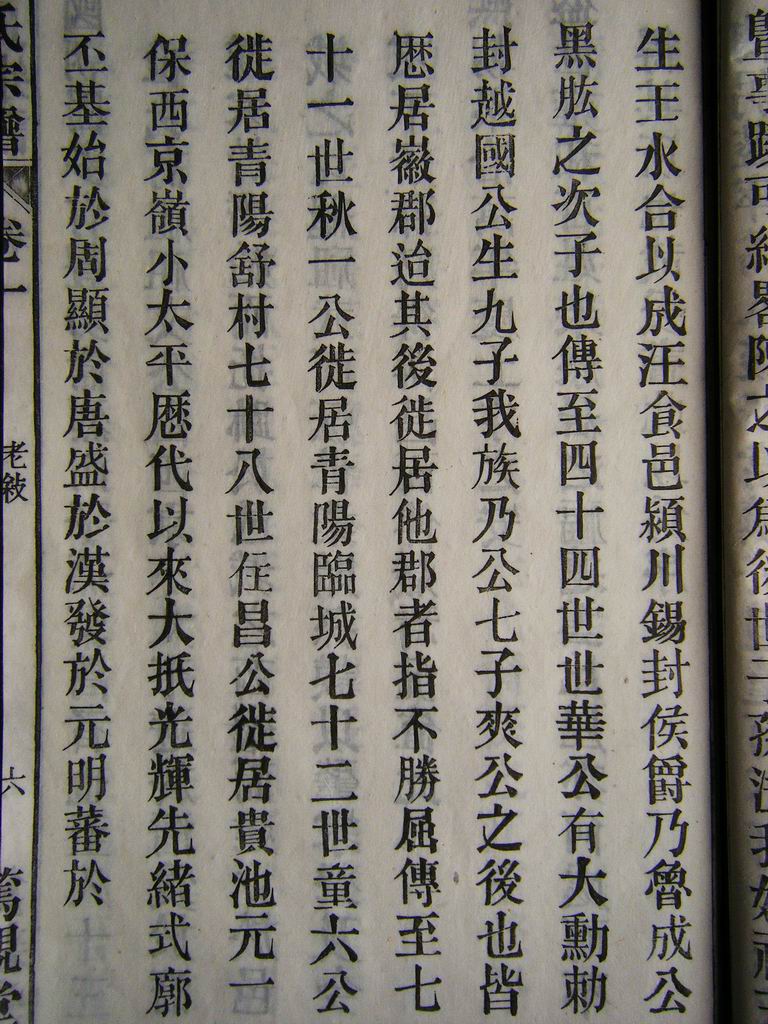 生王水合以成汪食邑潁川錫封侯爵乃魯成公
黑肱之次子也傳至四十四世世華公有大勳勅
封越國公生九子我族乃公七子爽公之後也皆
歴居徽郡迨其後徙居他郡者指不勝屈傳至七
十一世秋一公徙居青陽臨城七十二世童六公
徙居青陽舒村七十八世任昌公徙居貴池元一
保西京嶺小太平歴代以來大抵光輝先緒式廓
丕基始於周顯於唐盛於漢發於元明蕃於
氏宗譜
卷一
老敍
六